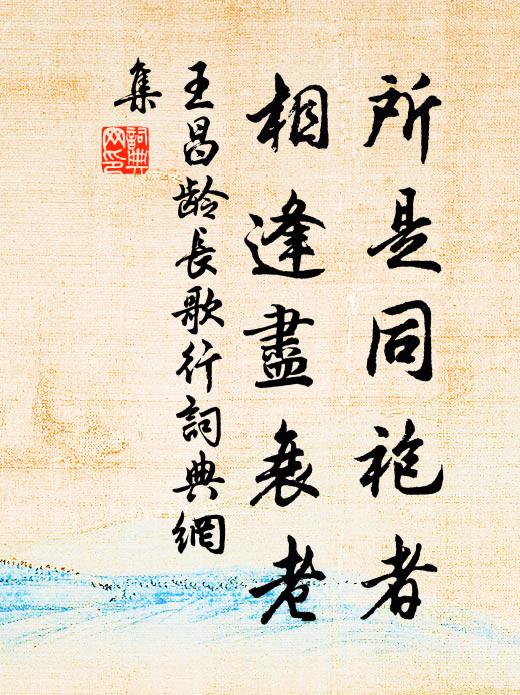 所是同袍者
相逢盡衰老
王昌龄長歌行詞典網
集
詞典网印